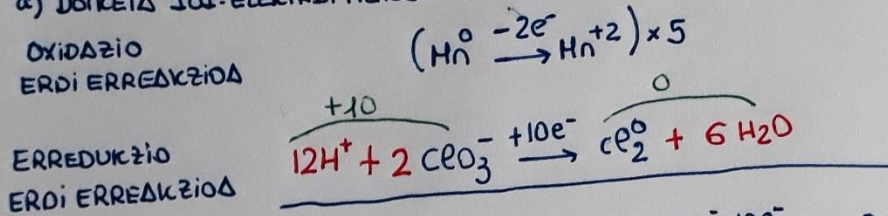 OXIDAZIO
ERDI ERREAKZIOA
(Mn⁰ −2e⁻ → Mn⁺²) × 5
+10
0
ERREDUKZIO
ERDI ERREAKZIOA
12H⁺ + 2 ClO₃⁻ +10e⁻ → Cl₂⁰ + 6 H₂O